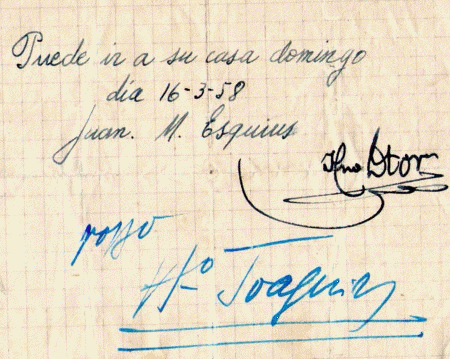 Puede ir a su casa domingo
día 16-3-58
Juan. M. Esquius
Hno Dtor
Hº Joaquin